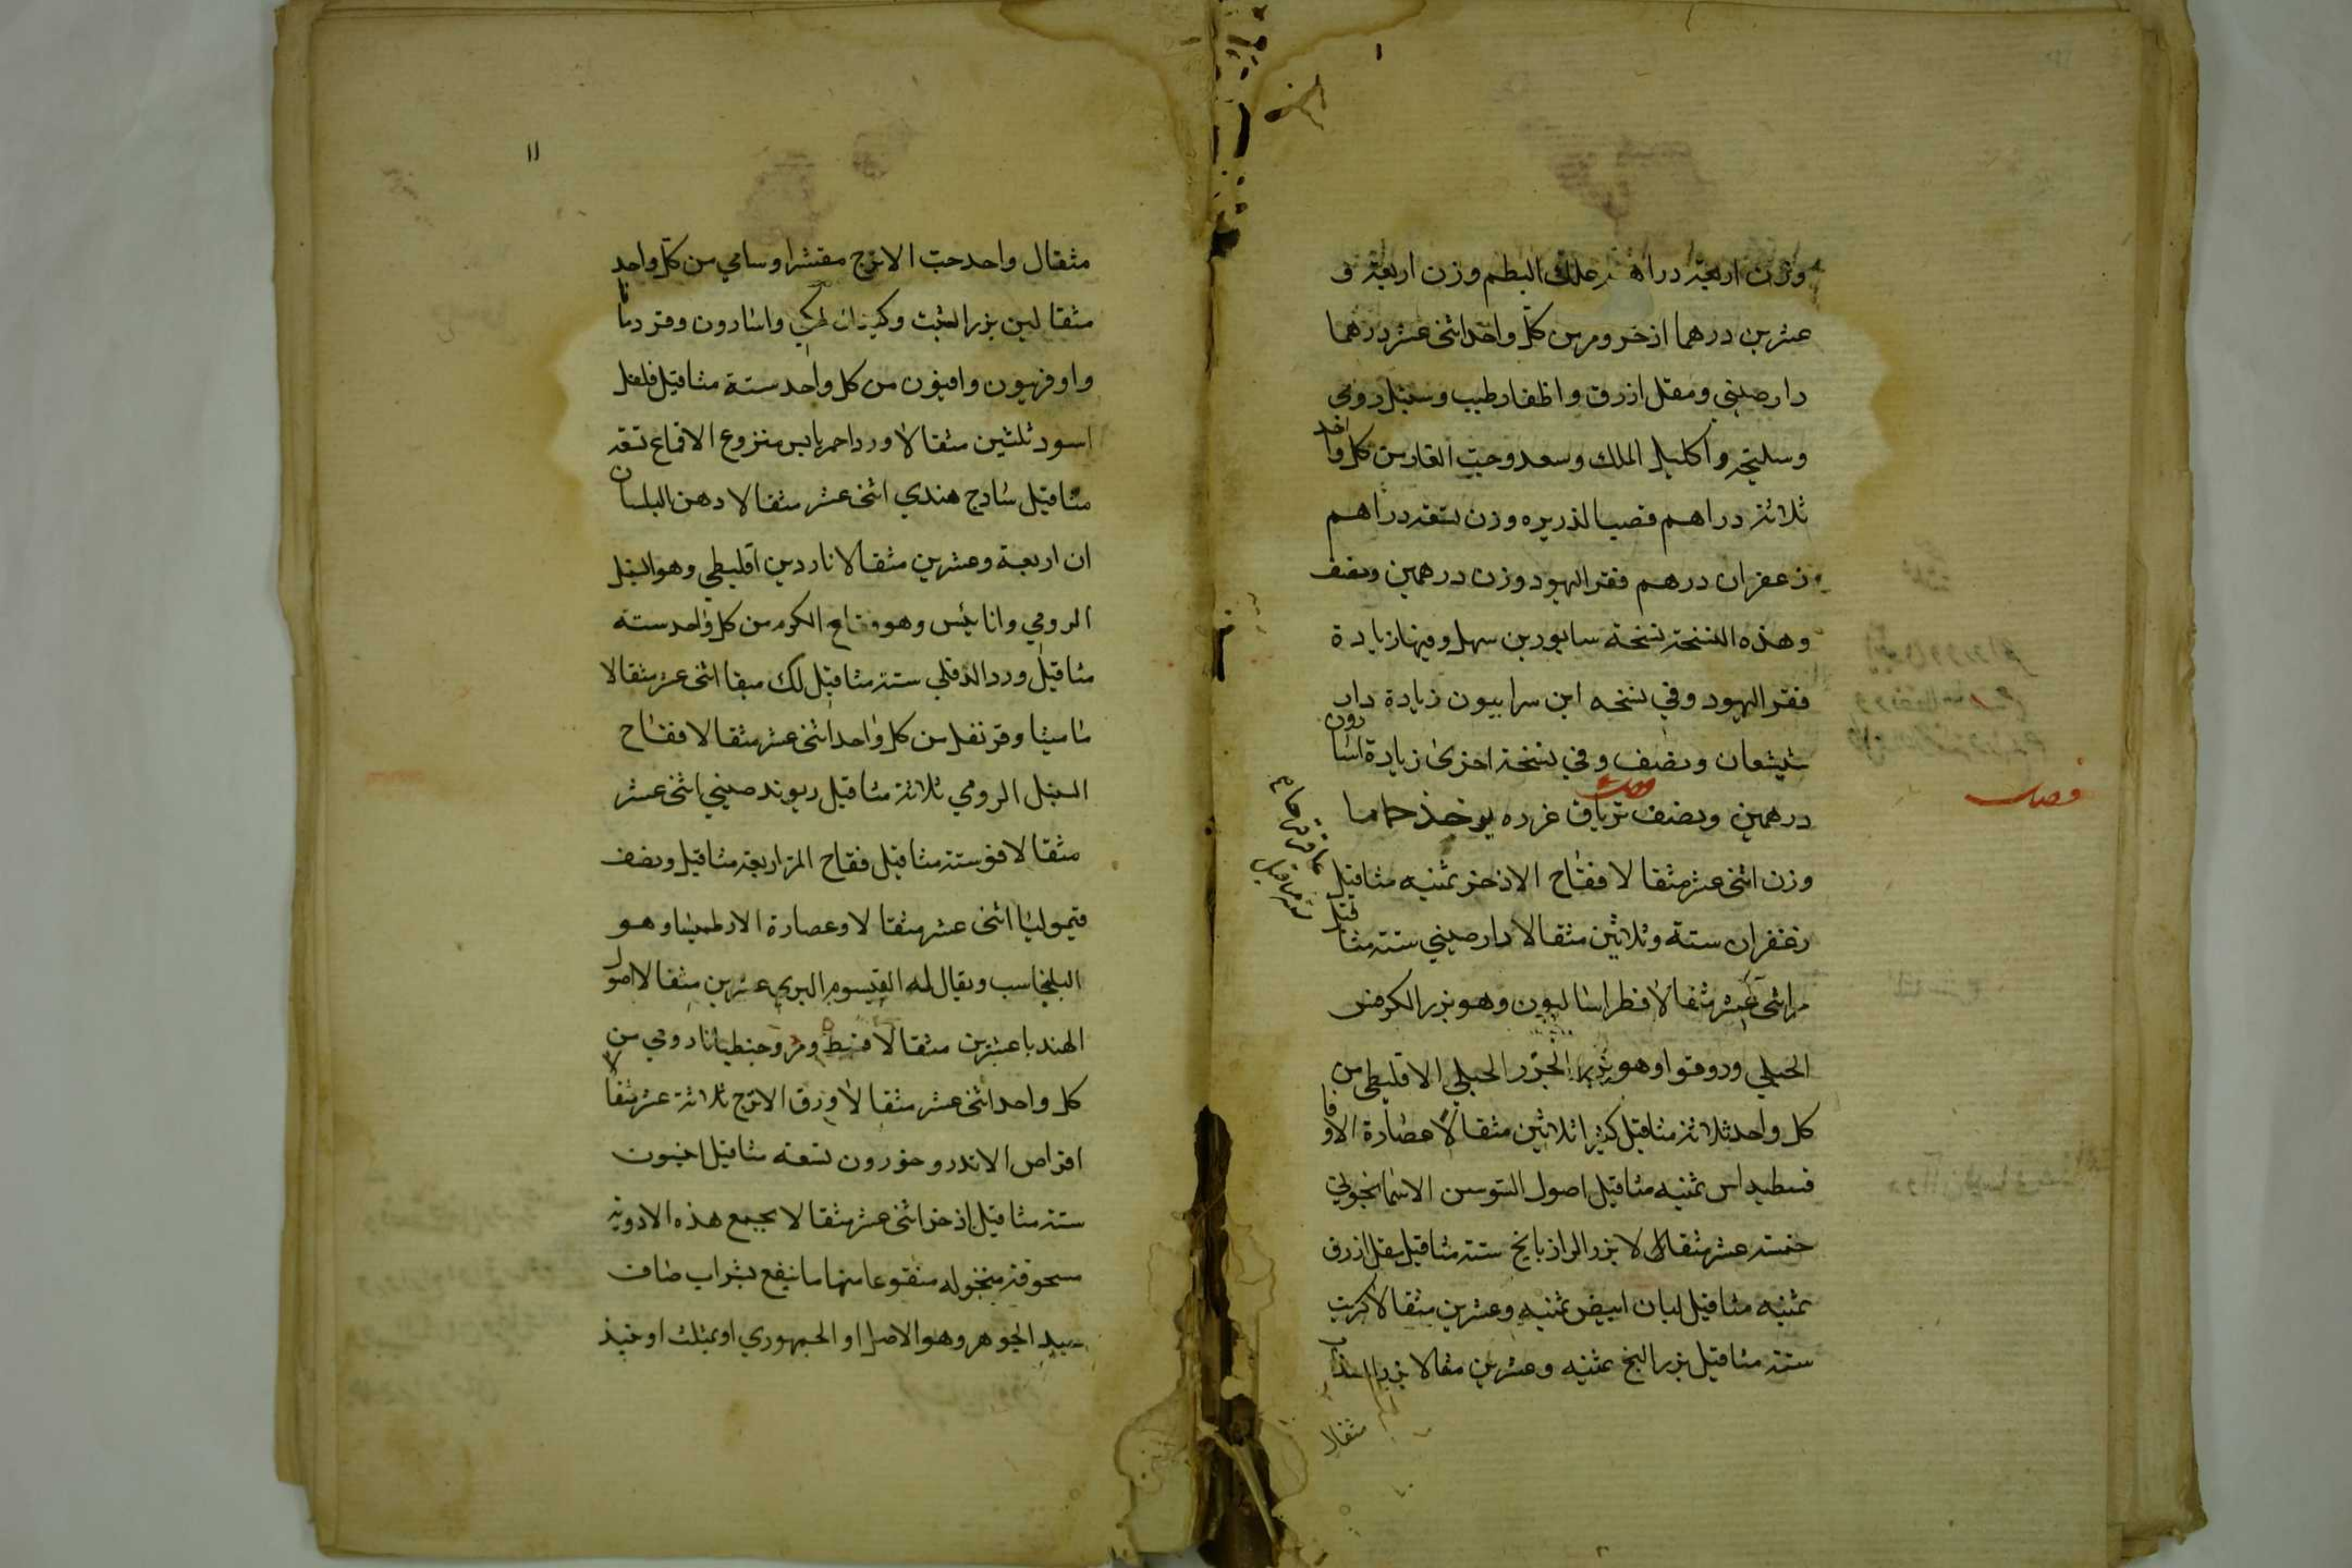 وزن اربعة دراهم علك البطم وزن اربعة و
عشرين درهما اذخر ومر من كل واحد اثنى عشر درهما
دارصيني ومقل ازرق واظفار طيب وسنبل رومي
وسليخة واكليل الملك وسعد وحب الغار من كل واحد
ثلاثة دراهم قصب الذريره وزن تسعة دراهم
زعفران درهم فقر اليهود وزن درهمين ونصف
وهذه النسخة نسخة سابور بن سهل وفيها زيادة
فقر اليهود وفي نسخه ابن سرابيون زيادة دار
شيشعان ونصف وفي نسخة اخرى زيادة اسارون
درهمين ونصف ترياق عزره يوخذ حماما
وزن اثنى عشر مثقالا فقاح الاذخر ثمنيه مثاقيل
زعفران ستة وثلاثين مثقالا دارصيني ستة مثاقيل
مر اثنى عشر مثقالا فطراساليون وهو بزر الكرفس
الجبلي ودوقوا وهو بزر الجزر الجبلي الاقليطي من
كل واحد ثلاثة مثاقيل كثيرا ثلاثين مثقالا عصارة الاوفا
قسطيداس ثمنيه مثاقيل اصول السوسن الاسمانجوني
خمسة عشر مثقالا بزر الرازيانج ستة مثاقيل مقل ازرق
ثمنيه مثاقيل لبان ابيض ثمنيه وعشرين مثقالا كبريت
ستة مثاقيل بزر البنج ثمنيه وعشرين مثقالا بزر السذاب
مثقالا
فصل
١١
مثقال واحد حب الاترج مقشرا وسامي من كل واحد
مثقالين بزر الشبث وكثيرا واسارون وقردمانا
واوفربيون وافيون من كل واحد ستة مثاقيل فلفل
اسود ثلثين مثقالا ورد احمر يابس منزوع الاقماع تسعة
مثاقيل سادج هندي اثنى عشر مثقالا دهن البلسان
ان اربعة وعشرين مثقالا ناردين اقليطي وهو السنبل
الرومي وانابيس وهو فقاح الكرم من كل واحد ستة
مثاقيل ورد الدفلي ستة مثاقيل لك منقا اثنى عشر مثقالا
ماميثا وقرنفل من كل واحد اثنى عشر مثقالا فقاح
السنبل الرومي ثلاثة مثاقيل ريوند صيني اثنى عشر
مثقالا فو ستة مثاقيل فقاح المر اربعة مثاقيل ونصف
قيموليا اثنى عشر مثقالا وعصارة الارطميسا وهو
البلنجاسب ويقال له القيسوم البري عشرين مثقالا اصول
الهندبا عشرين مثقالا قسط ومر وجنطيانا رومي من
كل واحد اثنى عشر مثقالا ورق الاترج ثلاثة عشر مثقالا
اقراص الاندروخورون تسعة مثاقيل انيسون
ستة مثاقيل اذخر اثنى عشر مثقالا يجمع هذه الادوية
مسحوقة منخوله منقوعا منها ما ينقع بشراب صاف
جيد الجوهر وهو الاصل او الجمهوري او بمثلث او نبيذ